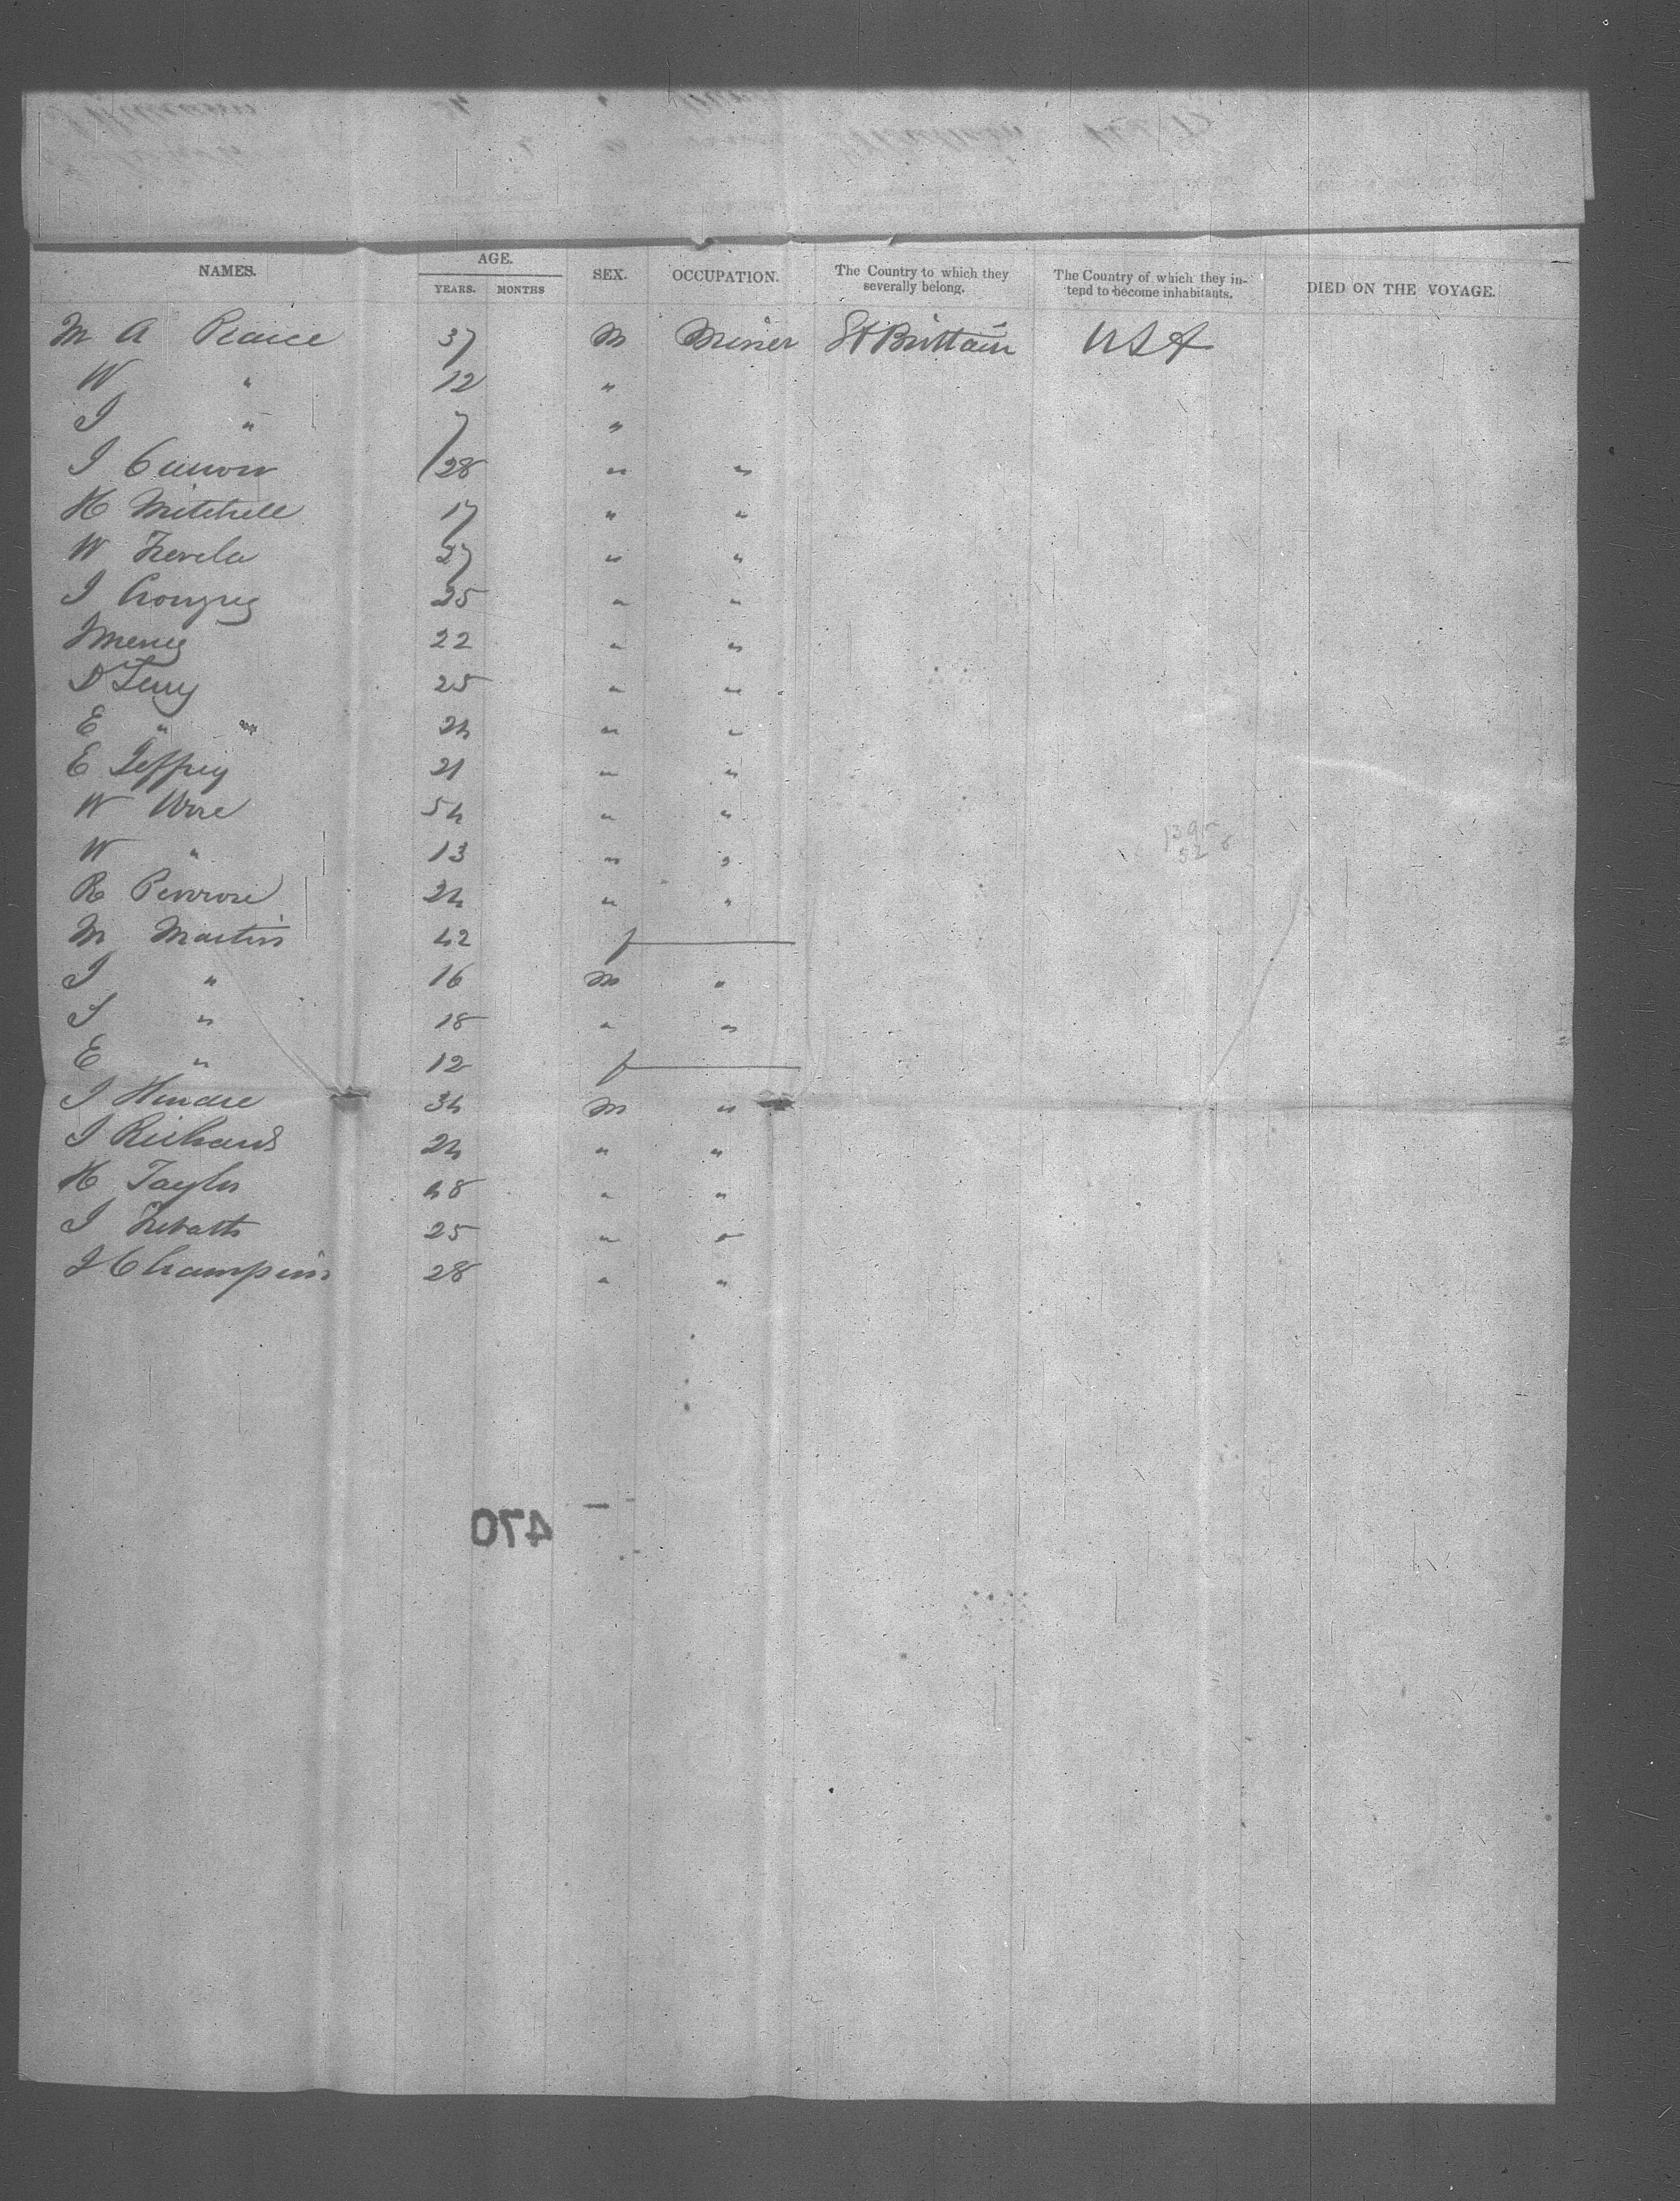 NAMES. AGE. YEARS. MONTHS SEX. OCCUPATION. The Country to which they severally belong. The Country of which they intend to become inhabitants. DIED ON THE VOYAGE.
M A Pearce 37 M Miner Gt Brittain USA
W " 12 "
J " 7 "
J 28 " "
H Mitchell 17 " "
W 27 " "
J 25 " "
22 " "
D Terry 25 " "
E " 24 " "
E Jeffrey 21 " "
W 54 " "
W " 13 " "
R Penrose 24 " "
M Martin 42 f
J " 16 M "
J " 18 " "
E " 12 f
J 34 M "
J Richards 24 " "
H Taylor 48 " "
J 25 " "
J Champion 28 " "
470